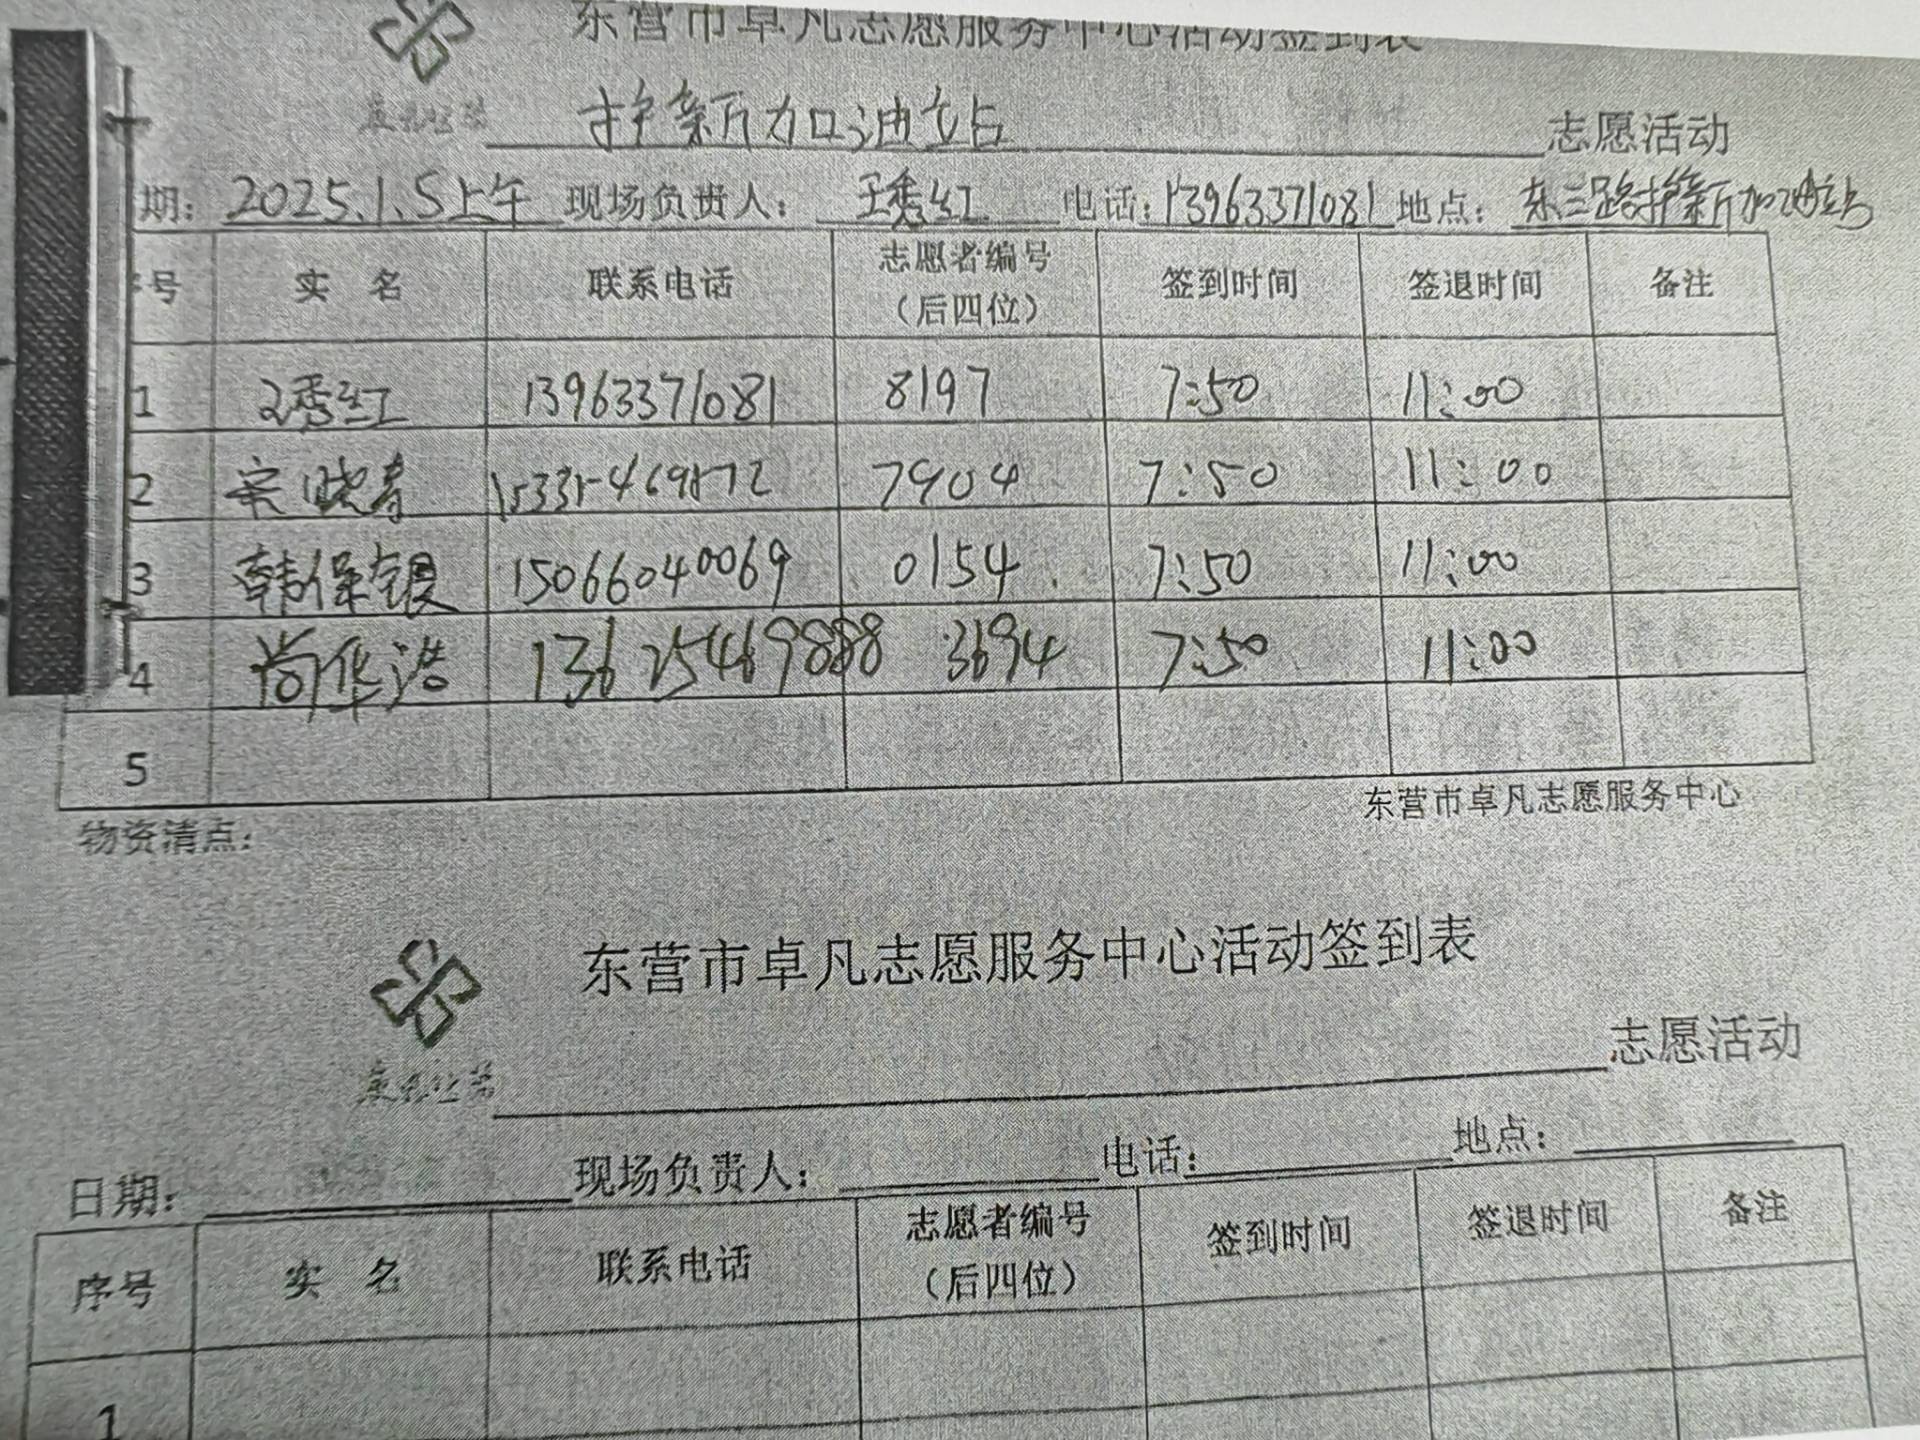 东营市卓凡志愿服务中心活动签到表
护薪加油站 志愿活动
期: 2025.1.5上午 现场负责人: 王秀红 电话: 13963371081 地点: 东三路护薪加油站
序号 实 名 联系电话 志愿者编号（后四位） 签到时间 签退时间 备注
1 王秀红 13963371081 8197 7:50 11:00
2 7904 7:50 11:00
3 韩保银 15066040069 0154 7:50 11:00
4 尚华浩 3694 7:50 11:00
5
东营市卓凡志愿服务中心
物资清点:
东营市卓凡志愿服务中心活动签到表
志愿活动
日期: 现场负责人: 电话: 地点:
序号 实 名 联系电话 志愿者编号（后四位） 签到时间 签退时间 备注
1